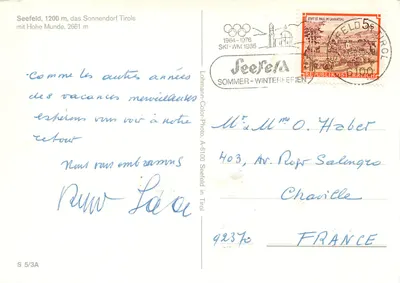 Seefeld, 1200 m, das Sonnendorf Tirols
mit Hohe Munde, 2661 m
Comme les autres années
des vacances merveilleuses
espérons vous voir à notre
retour
Nous vous embrassons
S 5/3A
Lohmann-Color-Photo, A-6100 Seefeld in Tirol
1964 - 1976
SKI-WM 1985
Seefeld
SOMMER-WINTERFERIEN
5S
REPUBLIK ÖSTERREICH
SEEFELD TIROL
6100
Mr et Mme O. Haber
403, Av. Roger Salengro
Chaville
92370 FRANCE